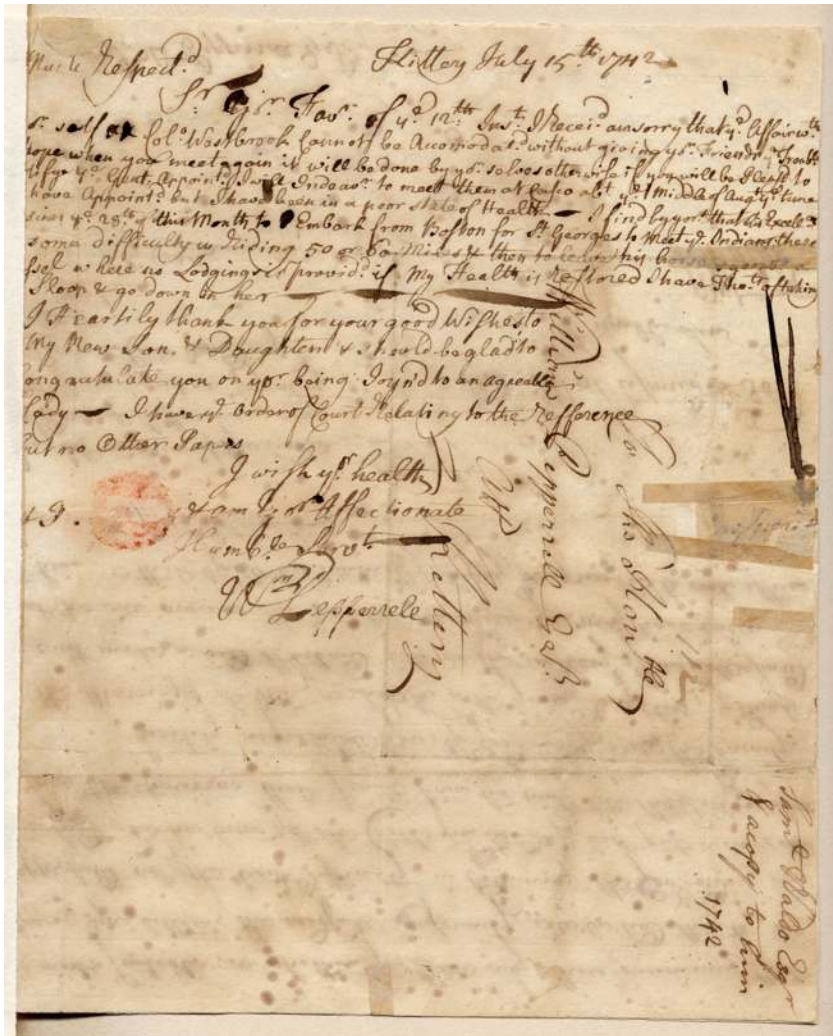 Much Respect.d Kittery July 15.th 1742
S.r Y.or Fav.r of y.e 12.th Ins.t I Receiv.d am sorry that y.e Affair w.th
y.r self & Col.o Westbrook Cannot be Acomodat.d without giving y.or Friends y.e Trouble
hope when you meet again it will be done by yo.r selves otherwise if you will be Pleas'd to
y.e Gent. Appoint.d I will Indeav.r to meet them at Casco ab.t y.e Middle of Aug.t y.e time
have Appoint.d but I have been in a poor state of Health — I find by yo.rs that his Excell
y.e 28.th of this Month to Embark from Boston for S.t Georges to Meet y.e Indians, there
some difficulty in Riding 50 or 60 Miles & then to leave his horse
where no Lodgings is provid.d if My Health is Restored I have Tho.ts of taking
Sloop & go down in her
I Heartily thank you for your good Wishes to
My New Son, & Daughter & should be glad to
Congratulate you on yo.r being Joyn'd to an agreeable
Lady — I have y.e Order of Court Relating to the Refference
but no Other Papers
I wish y.or health
& am Y.or Affectionate
Humb.le Serv.t
W.m Pepperrell
To The Hon.ble
William Pepperrell Esq.r
Att
Kittery
Sam.l Waldo Esqr
& a copy to him
1742